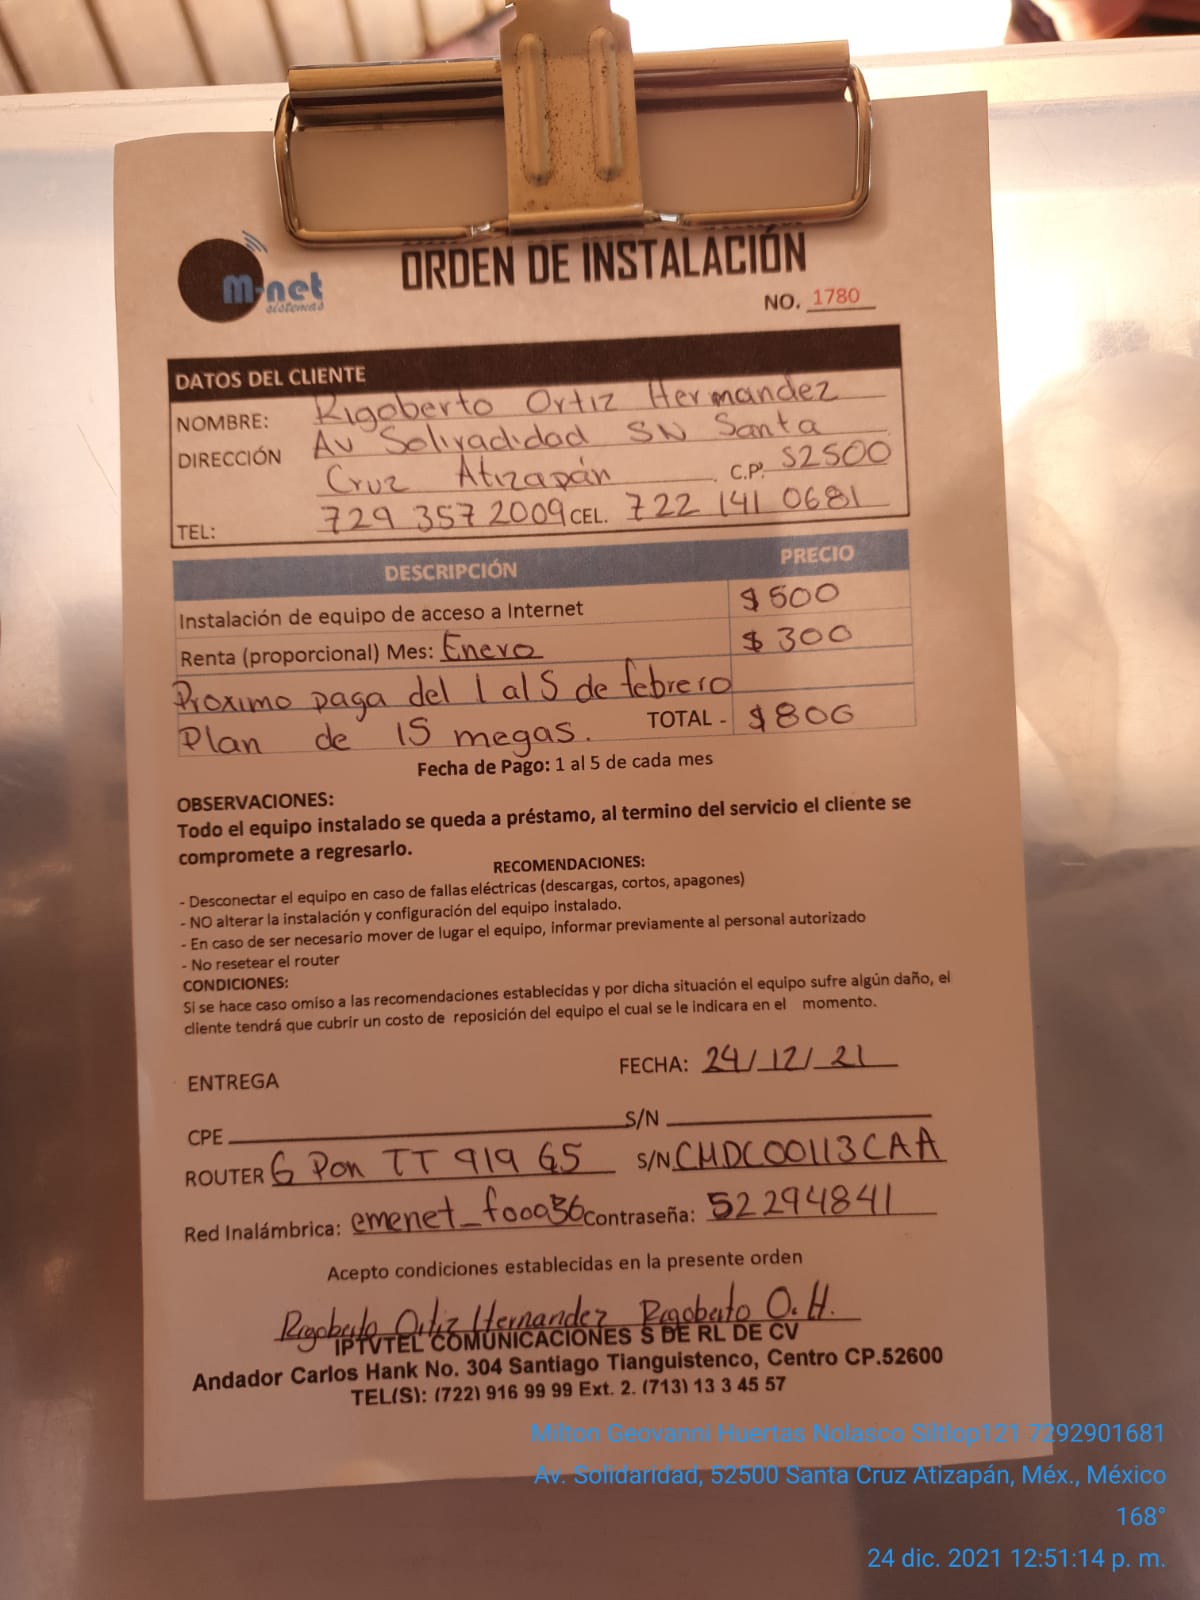 ORDEN DE INSTALACIÓN
m-net
sistemas
NO. 1780
DATOS DEL CLIENTE
NOMBRE: Rigoberto Ortiz Hernandez
DIRECCIÓN Av Solivadidad SN Santa
Cruz Atizapán C.P. 52500
TEL: 729 357 2009 CEL. 722 141 0681
DESCRIPCIÓN PRECIO
Instalación de equipo de acceso a Internet $ 500
Renta (proporcional) Mes: Enero $ 300
Proximo paga del 1 al 5 de febrero
Plan de 15 megas. TOTAL - $ 800
Fecha de Pago: 1 al 5 de cada mes
OBSERVACIONES:
Todo el equipo instalado se queda a préstamo, al termino del servicio el cliente se
compromete a regresarlo.
RECOMENDACIONES:
- Desconectar el equipo en caso de fallas eléctricas (descargas, cortos, apagones)
- NO alterar la instalación y configuración del equipo instalado.
- En caso de ser necesario mover de lugar el equipo, informar previamente al personal autorizado
- No resetear el router
CONDICIONES:
Si se hace caso omiso a las recomendaciones establecidas y por dicha situación el equipo sufre algún daño, el
cliente tendrá que cubrir un costo de reposición del equipo el cual se le indicara en el momento.
ENTREGA FECHA: 24/12/21
CPE S/N
ROUTER G Pon TT 919 G5 S/N CMDC00113CAA
Red Inalámbrica: emenet_ Contraseña: 52294841
Acepto condiciones establecidas en la presente orden
Rigoberto Ortiz Hernandez Rigoberto O. H.
IPTVTEL COMUNICACIONES S DE RL DE CV
Andador Carlos Hank No. 304 Santiago Tianguistenco, Centro CP.52600
TEL(S): (722) 916 99 99 Ext. 2. (713) 13 3 45 57
Milton Geovanni Huertas Nolasco Siltlop121 7292901681
Av. Solidaridad, 52500 Santa Cruz Atizapán, Méx., México
168°
24 dic. 2021 12:51:14 p. m.